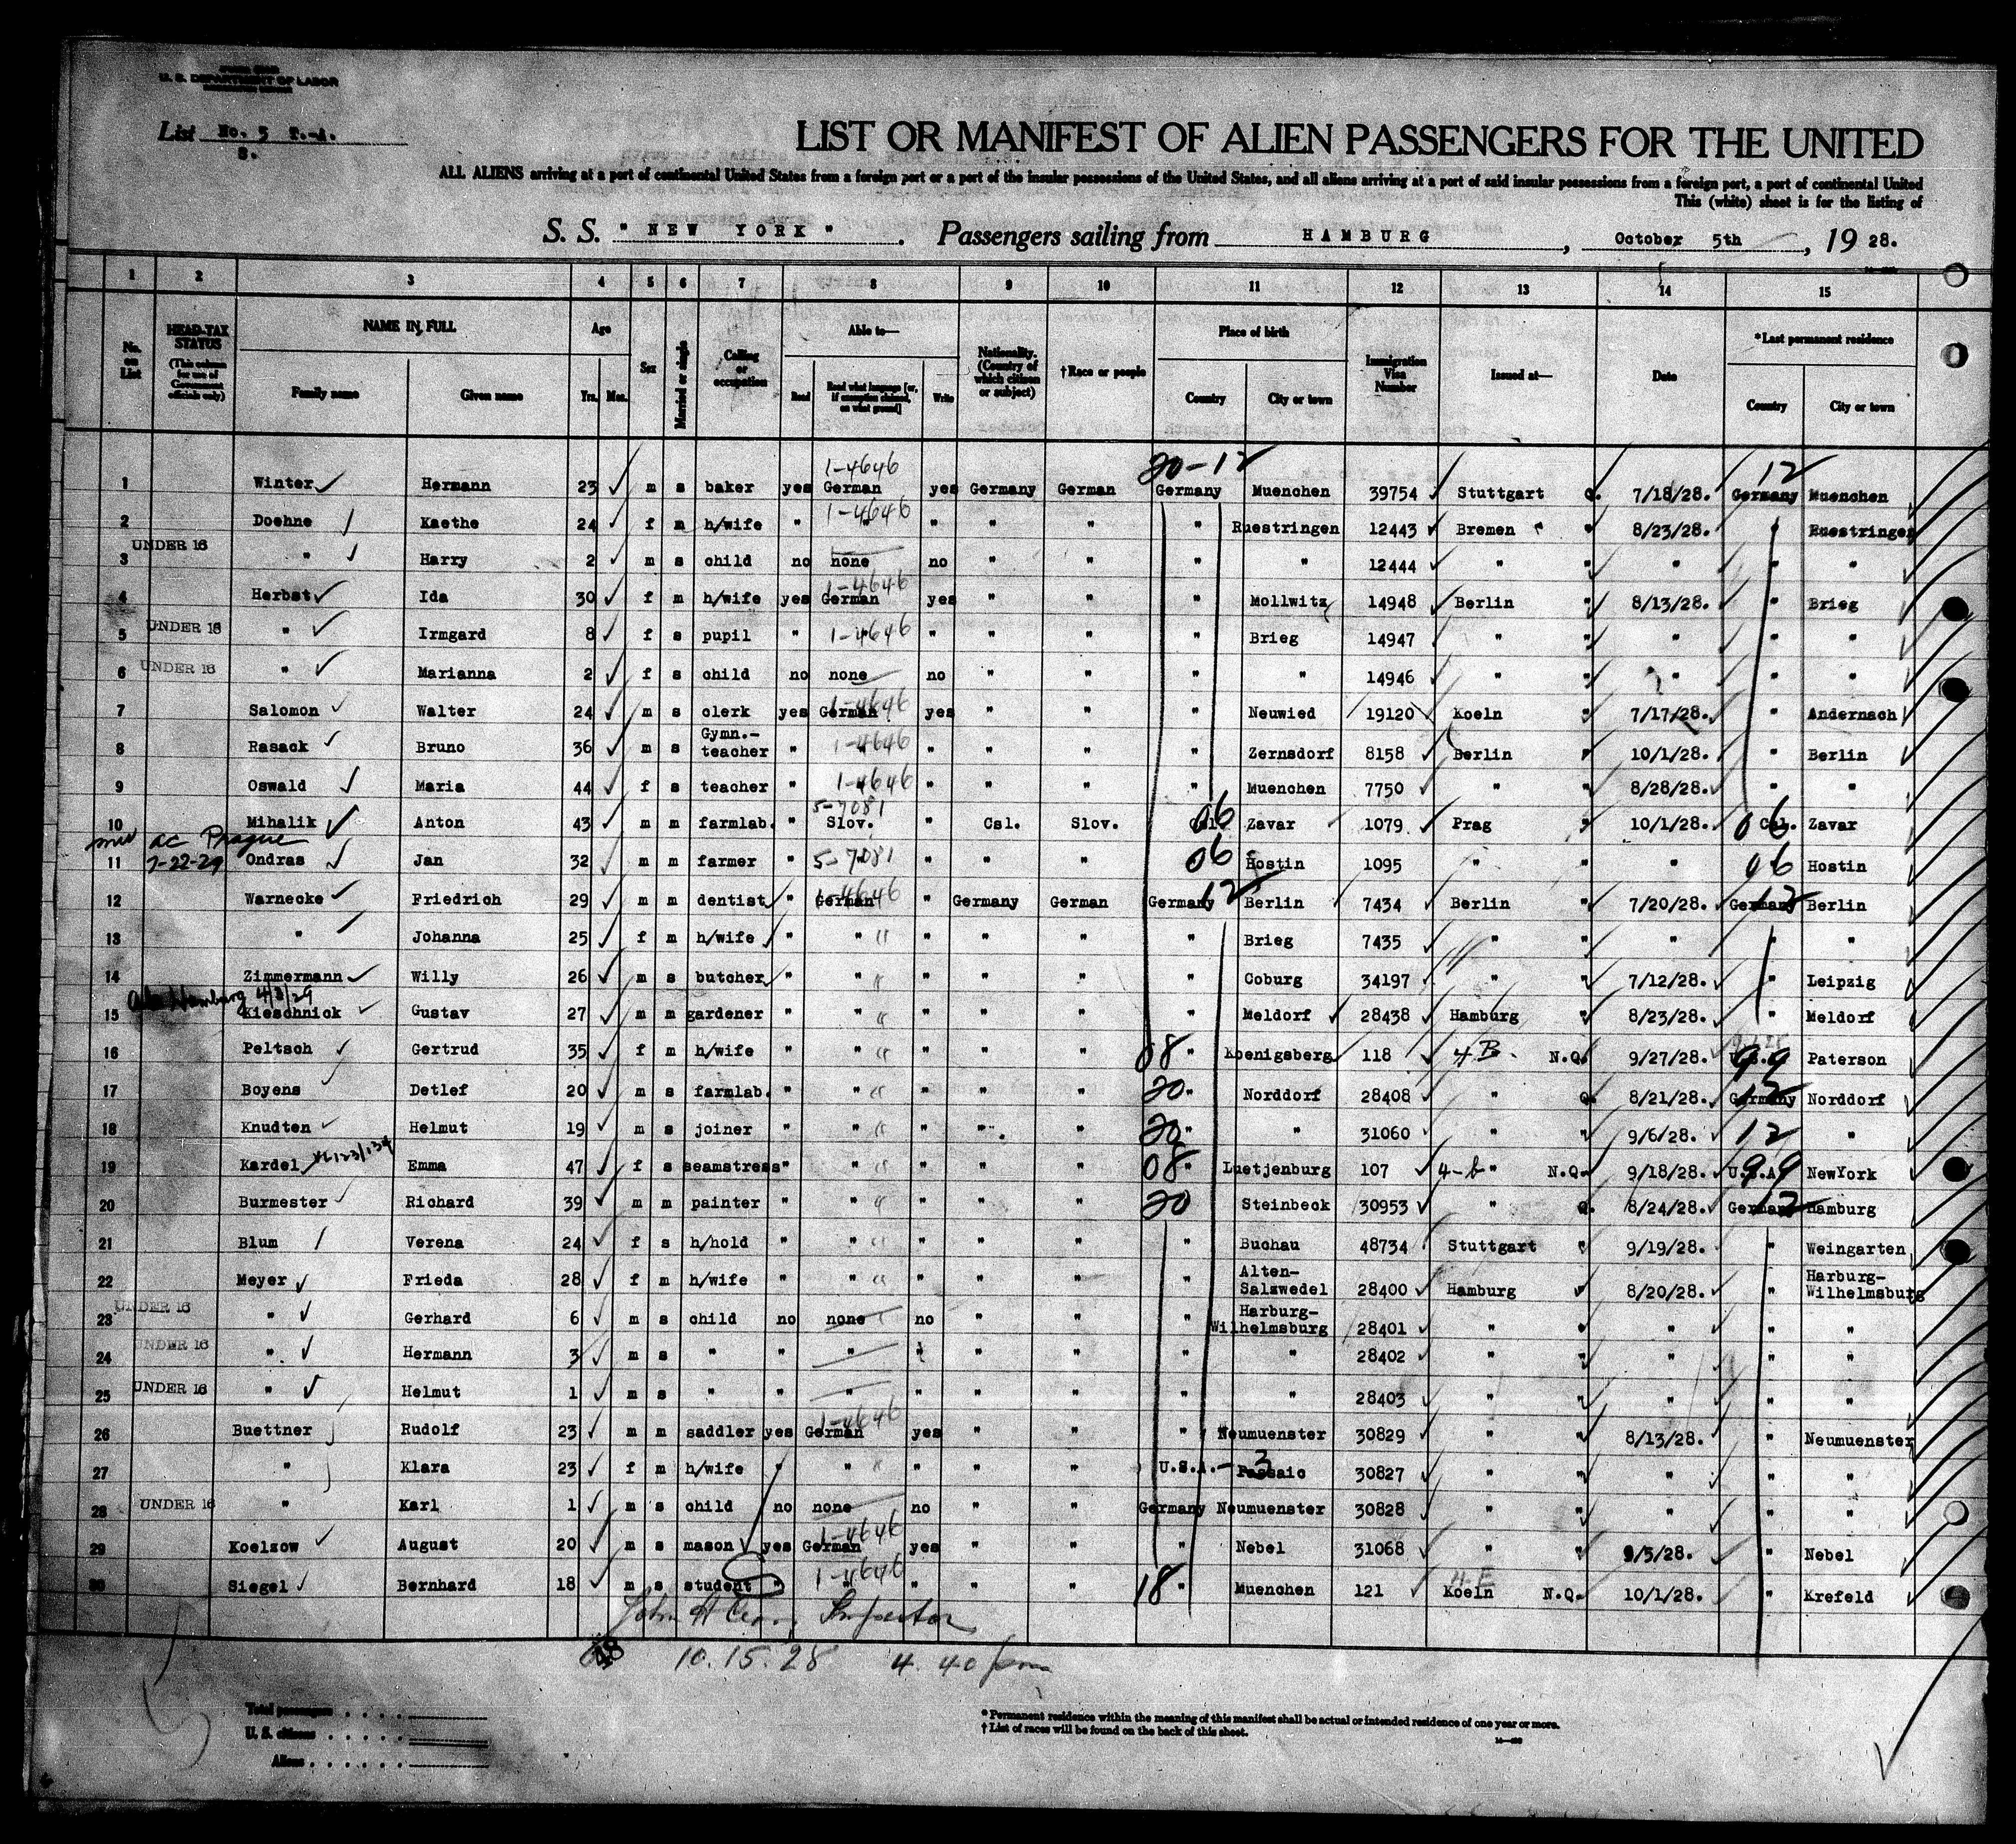 U. S. DEPARTMENT OF LABOR
List No. 5 T.-A.
8.
LIST OR MANIFEST OF ALIEN PASSENGERS FOR THE UNITED
ALL ALIENS arriving at a port of continental United States from a foreign port or a port of the insular possessions of the United States, and all aliens arriving at a port of said insular possessions from a foreign port, a port of continental United
This (white) sheet is for the listing of
S. S. " NEW YORK " . Passengers sailing from HAMBURG , October 5th , 19 28.
1 2 3 4 5 6 7 8 9 10 11 12 13 14 15
No. on List
HEAD-TAX STATUS (This column for use of Government officials only)
NAME IN FULL
Family name Given name
Age Yrs. Mos.
Sex
Married or single
Calling or occupation
Able to— Read Read what language [or, if exemption claimed, on what ground] Write
Nationality. (Country of which citizen or subject)
†Race or people
Place of birth Country City or town
Immigration Visa Number
Issued at—
Date
*Last permanent residence Country City or town
1-4646 20-12 12
1 Winter Hermann 23 m s baker yes German yes Germany German Germany Muenchen 39754 Stuttgart Q. 7/18/28. Germany Muenchen
2 Doehne Kaethe 24 f m h/wife " 1-4646 " " " " Ruestringen 12443 Bremen " 8/23/28. " Ruestringen
UNDER 16
3 " Harry 2 m s child no none no " " " " 12444 " " " " "
1-4646
4 Herbst Ida 30 f m h/wife yes German yes " " " Mollwitz 14948 Berlin " 8/13/28. " Brieg
5 UNDER 16 " Irmgard 8 f s pupil " 1-4646 " " " " Brieg 14947 " " " " "
6 UNDER 16 " Marianna 2 f s child no none no " " " " 14946 " " " " "
7 Salomon Walter 24 m s clerk yes German 1-4646 yes " " " Neuwied 19120 Koeln " 7/17/28. " Andernach
8 Rasack Bruno 36 m s Gymn.-teacher " 1-4646 " " " " Zernsdorf 8158 Berlin " 10/1/28. " Berlin
9 Oswald Maria 44 f s teacher " 1-4646 " " " " Muenchen 7750 " " 8/28/28. " "
5-7081 06 06
10 Mihalik Anton 43 m m farmlab. " Slov. " Csl. Slov. Csl. Zavar 1079 Prag " 10/1/28. Csl. Zavar
ac Prague
11 7-22-29 Ondras Jan 32 m m farmer " 5-7081 " " " 06 Hostin 1095 " " " 06 Hostin
1-4646 12 12
12 Warnecke Friedrich 29 m m dentist " German " Germany German Germany Berlin 7434 Berlin " 7/20/28. Germany Berlin
13 " Johanna 25 f m h/wife " " " " " " Brieg 7435 " " " " "
14 Zimmermann Willy 26 m s butcher " " " " " " Coburg 34197 " " 7/12/28. " Leipzig
Hamburg 4/8/29
15 Kieschnick Gustav 27 m m gardener " " " " " " Meldorf 28438 Hamburg " 8/23/28. " Meldorf
16 Peltsch Gertrud 35 f m h/wife " " " " " 08 " Koenigsberg 118 4 B. N.Q. 9/27/28. U.S.A. 99 Paterson
17 Boyens Detlef 20 m s farmlab. " " " " " 20 " Norddorf 28408 " Q. 8/21/28. Germany 12 Norddorf
18 Knudten Helmut 19 m s joiner " " " " " 20 " " 31060 " " 9/6/28. 12 "
19 Kardel Emma 47 f s seamstress " " " " " 08 " Luetjenburg 107 4-b " N.Q. 9/18/28. U.S.A. 99 NewYork
20 Burmester Richard 39 m m painter " " " " " 20 Steinbeck 30953 " Q. 8/24/28. Germany 12 Hamburg
21 Blum Verena 24 f s h/hold " " " " " " Buchau 48734 Stuttgart " 9/19/28. " Weingarten
22 Meyer Frieda 28 f m h/wife " " " " " " Alten-Salzwedel 28400 Hamburg " 8/20/28. " Harburg-Wilhelmsburg
UNDER 16
23 " Gerhard 6 m s child no none no " " " Harburg-Wilhelmsburg 28401 " " " " "
UNDER 16
24 " Hermann 3 m s " " " " " " " " 28402 " " " " "
25 UNDER 16 " Helmut 1 m s " " " " " " " " 28403 " " " " "
1-4646
26 Buettner Rudolf 23 m m saddler yes German yes " " " Neumuenster 30829 " " 8/13/28. " Neumuenster
27 " Klara 23 f m h/wife " " " " " U.S.A.- 3 Passaic 30827 " " " " "
28 UNDER 16 " Karl 1 m s child no none no " " Germany Neumuenster 30828 " " " " "
1-4646
29 Koelzow August 20 m s mason yes German yes " " " Nebel 31068 " " 9/5/28. " Nebel
1-4646
30 Siegel Bernhard 18 m s student " " " " " 18 " Muenchen 121 Koeln N.Q. 10/1/28. " Krefeld
John H Inspector
10.15.28 4.40 pm
Total passengers
U. S. citizens
Aliens
* Permanent residence within the meaning of this manifest shall be actual or intended residence of one year or more.
† List of races will be found on the back of this sheet.